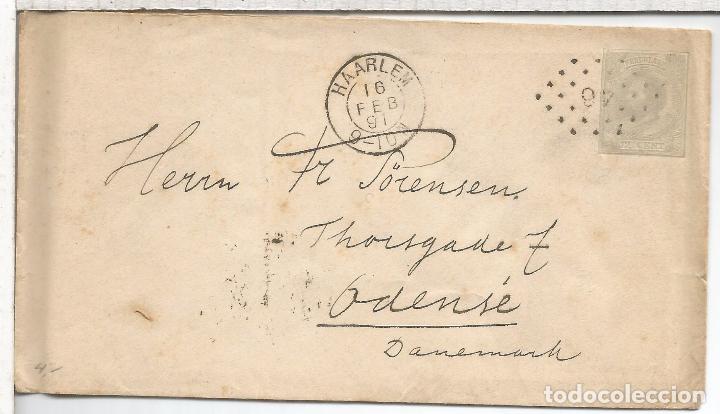 HAARLEM
16
FEB
91
9-10V
NEDERLAND
CENT
Herrn Fr Sörensen.
Thorsgade 7
Odensé
Danemark
4,-
todocoleccion.net